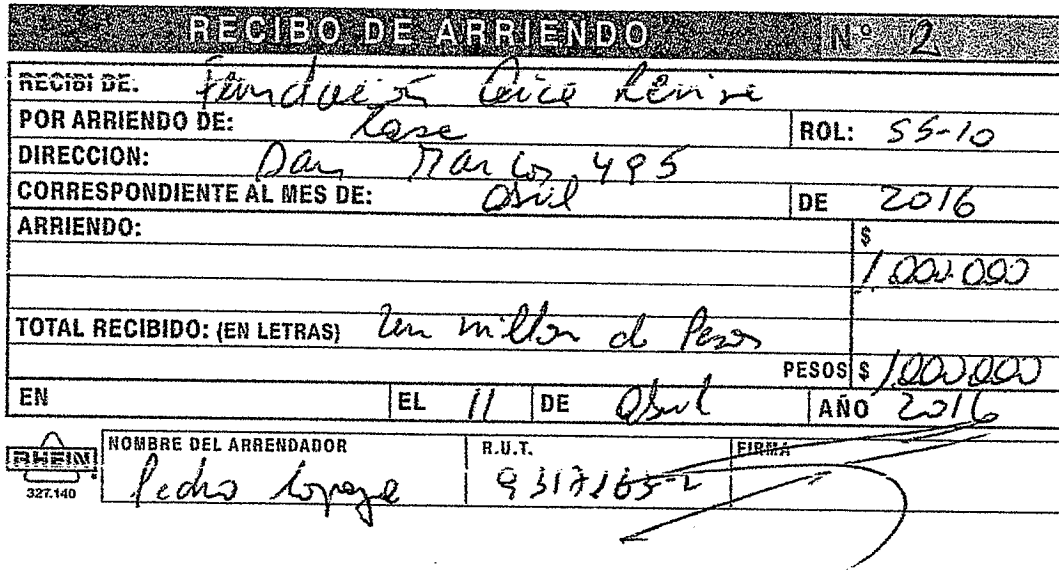 RECIBO DE ARRIENDO Nº 2
RECIBI DE: Fundación
POR ARRIENDO DE: Casa ROL: 55-10
DIRECCION: San Marcos 495
CORRESPONDIENTE AL MES DE: Abril DE 2016
ARRIENDO: $
1.000.000
TOTAL RECIBIDO: (EN LETRAS) Un millon de Pesos
PESOS $ 1.000.000
EN EL 11 DE Abril AÑO 2016
RHEIN
327.140
NOMBRE DEL ARRENDADOR R.U.T. FIRMA
Pedro